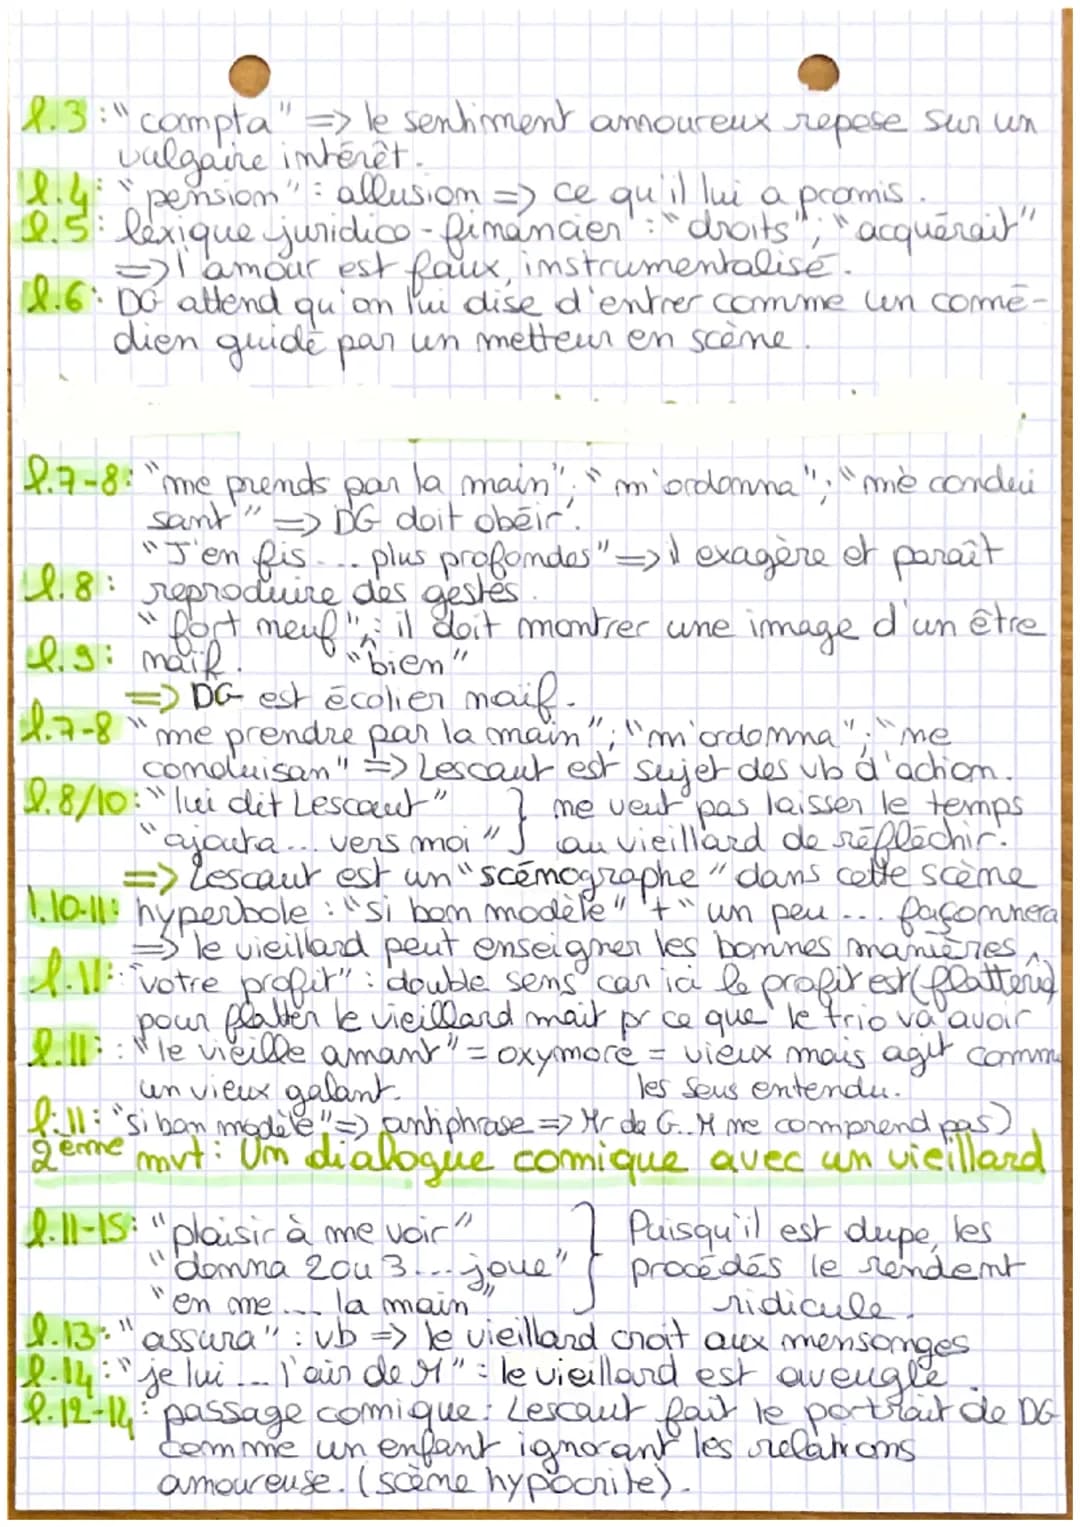 l.3 : "compta" => le sentiment amoureux repose sur un
vulgaire intérêt.
l.4 : "pension" : allusion => ce qu'il lui a promis.
l.5 : lexique juridico-financier : "droits" ; "acquérait"
=> l'amour est faux, instrumentalisé.
l.6 : DG attend qu'on lui dise d'entrer comme un comé-
dien guidé par un metteur en scène.
l.7-8 : "me prends par la main" ; "m'ordonna" ; "me condui
sant" => DG doit obéir.
"J'en fis ... plus profondes" => il exagère et paraît
l.8 : reproduire des gestes.
"fort neuf" : il doit montrer une image d'un être
l.9 : naïf. "bien"
=> DG est écolier naïf.
l.7-8 "me prendre par la main" ; "m'ordonna" ; "me
conduisan" => Lescaut est sujet des vb d'action.
l.8/10 : "lui dit Lescaut" } ne veut pas laisser le temps
"ajouta ... vers moi" } au vieillard de réfléchir.
=> Lescaut est un "scénographe" dans cette scène
l.10-11 : hyperbole : "si bon modèle" + "un peu ... façonnera
=> le vieillard peut enseigner les bonnes manières
l.11 : "votre profit" : double sens car ici le profit est (flatterie)
pour flatter le vieillard mait pr ce que le trio va avoir
l.11 : "le vieille amant" = oxymore = vieux mais agit comme
un vieux galant. les sous entendu.
l.11 : "si bon modèle" => antiphrase => Mr de G..M ne comprend pas)
2ème mvt : Un dialogue comique avec un vieillard
l.11-15 : "plaisir à me voir" } Puisqu'il est dupe, les
"donna 2 ou 3 ... joue" } procédés le rendent
"en me ... la main" } ridicule.
l.13 : "assura" : vb => le vieillard croit aux mensonges
l.14 : "je lui ... l'air de M" : le vieillard est aveuglé.
l.12-14 : passage comique : Lescaut fait le portrait de DG
comme un enfant ignorant les relations
amoureuse. (scène hypocrite).